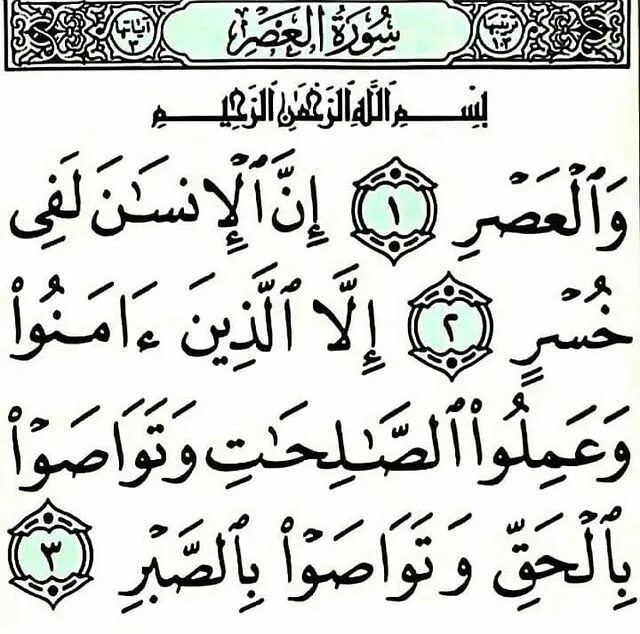 ترتيبها ١٠٣ سُورَةُ الْعَصْرِ آياتها ٣
بِسْمِ ٱللَّهِ ٱلرَّحْمَٰنِ ٱلرَّحِيمِ
وَٱلْعَصْرِ ١ إِنَّ ٱلْإِنسَٰنَ لَفِى
خُسْرٍ ٢ إِلَّا ٱلَّذِينَ ءَامَنُوا۟
وَعَمِلُوا۟ ٱلصَّٰلِحَٰتِ وَتَوَاصَوْا۟
بِٱلْحَقِّ وَتَوَاصَوْا۟ بِٱلصَّبْرِ ٣